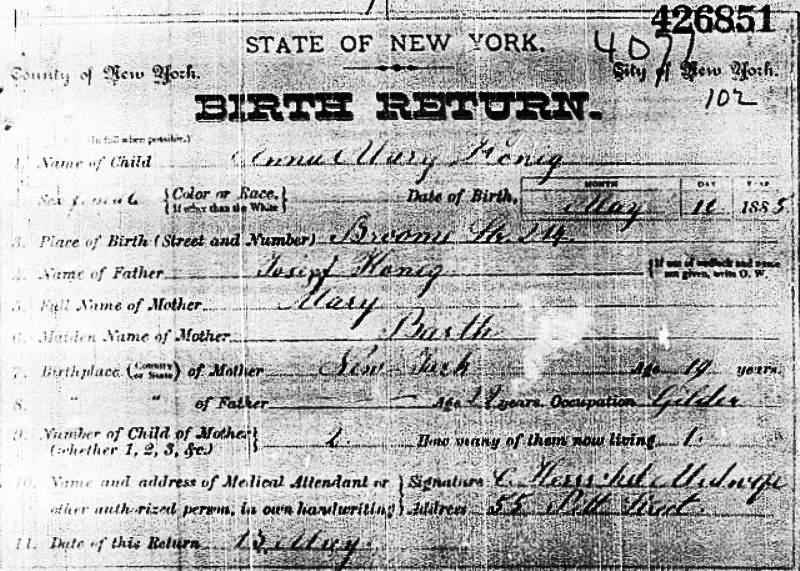 426851
STATE OF NEW YORK. 4077
County of New York. City of New York.
102
BIRTH RETURN.
(In full when possible.)
1. Name of Child Anna Mary König
2. Sex female {Color or Race, If other than the White} Date of Birth, MONTH May DAY YEAR 1885
3. Place of Birth (Street and Number) Broome Str.
4. Name of Father Josepf König {If out of wedlock and name not given, write O. W.
5. Full Name of Mother Mary
6. Maiden Name of Mother Barth
7. Birthplace (Country or State) of Mother New York Age 19 years.
8. " " of Father — — Age years. Occupation Gilder
9. Number of Child of Mother (whether 1, 2, 3, &c.) } 2 How many of them now living 1.
10. Name and address of Medical Attendant or } Signature C. Midwife
other authorized person, in own handwriting } Address 55 Pitt Street.
11. Date of this Return 13 May.